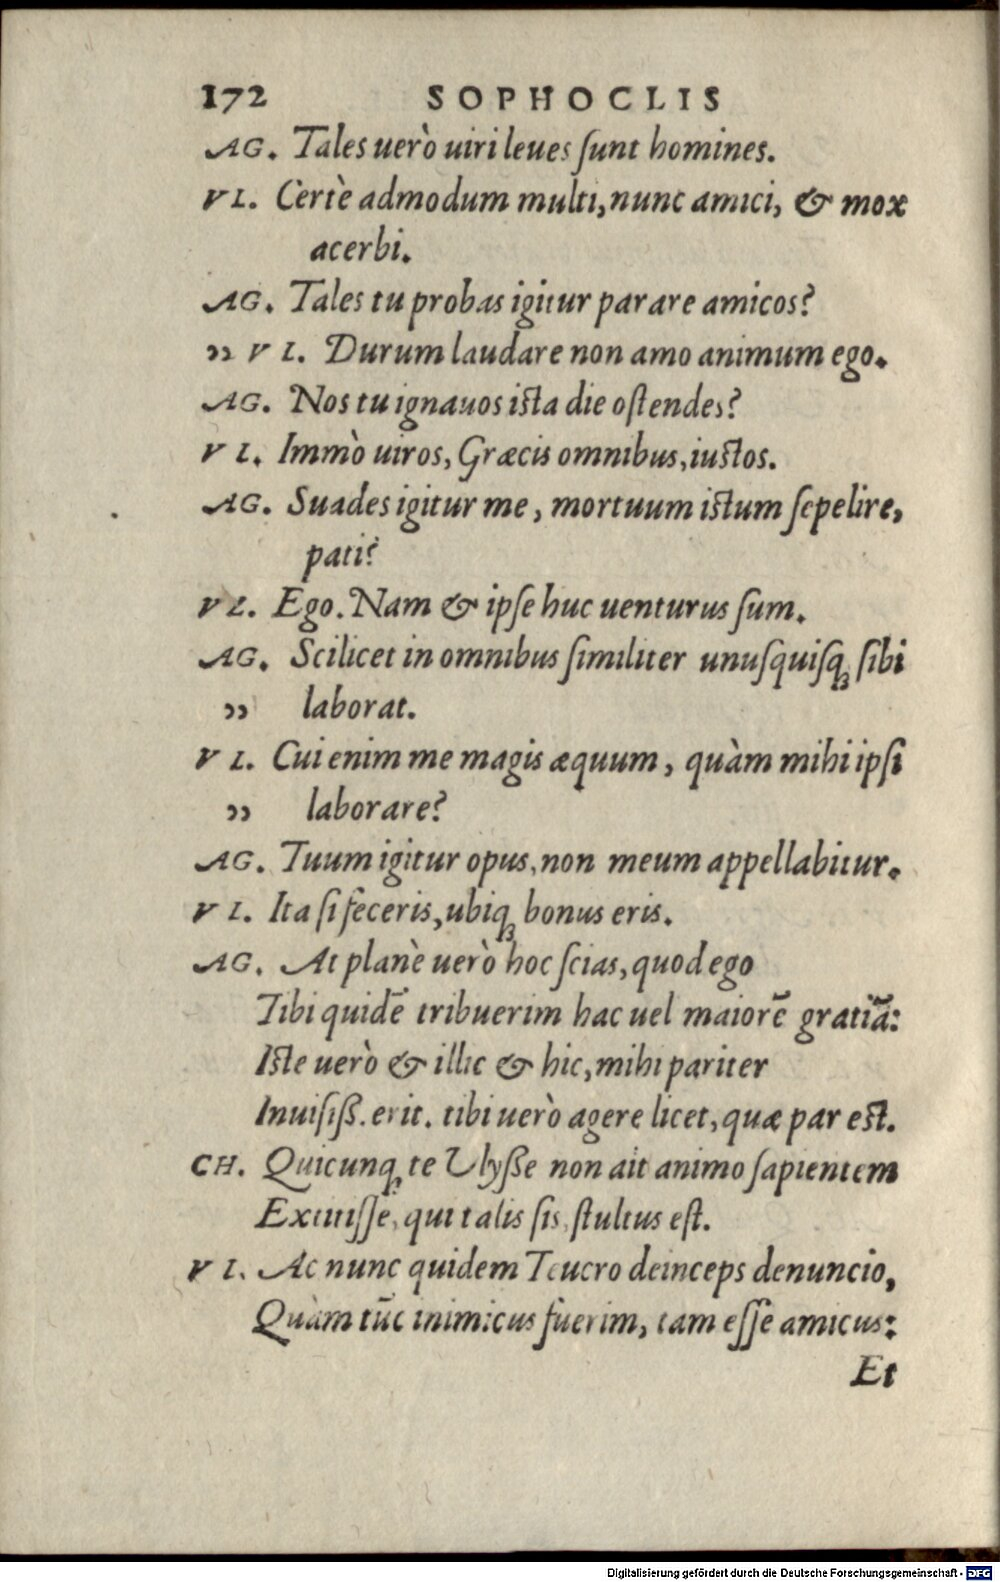 172 SOPHOCLIS
AG. Tales uerò uiri leues ſunt homines.
VL. Certè admodum multi, nunc amici, & mox
acerbi.
AG. Tales tu probas igitur parare amicos?
„ VL. Durum laudare non amo animum ego.
AG. Nos tu ignauos iſta die oſtendes?
VL. Immò uiros, Græcis omnibus, iuſtos.
AG. Suades igitur me, mortuum iſtum ſepelire,
pati?
VL. Ego. Nam & ipſe huc uenturus ſum.
AG. Scilicet in omnibus ſimiliter unuſquiſq; ſibi
„ laborat.
VL. Cui enim me magis æquum, quàm mihi ipſi
„ laborare?
AG. Tuum igitur opus, non meum appellabitur.
VL. Ita ſi feceris, ubiq; bonus eris.
AG. At planè uerò hoc ſcias, quod ego
Tibi quidē tribuerim hac uel maiorē gratiā:
Iſte uerò & illic & hic, mihi pariter
Inuiſiſß. erit. tibi uerò agere licet, quæ par eſt.
CH. Quicunq; te Vlyſſe non ait animo ſapientem
Extitiſſe, qui talis ſis, ſtultus eſt.
VL. Ac nunc quidem Teucro deinceps denuncio,
Quàm tūc inimicus fuerim, tam eſſe amicus:
Et
Digitalisierung gefördert durch die Deutsche Forschungsgemeinschaft - DFG